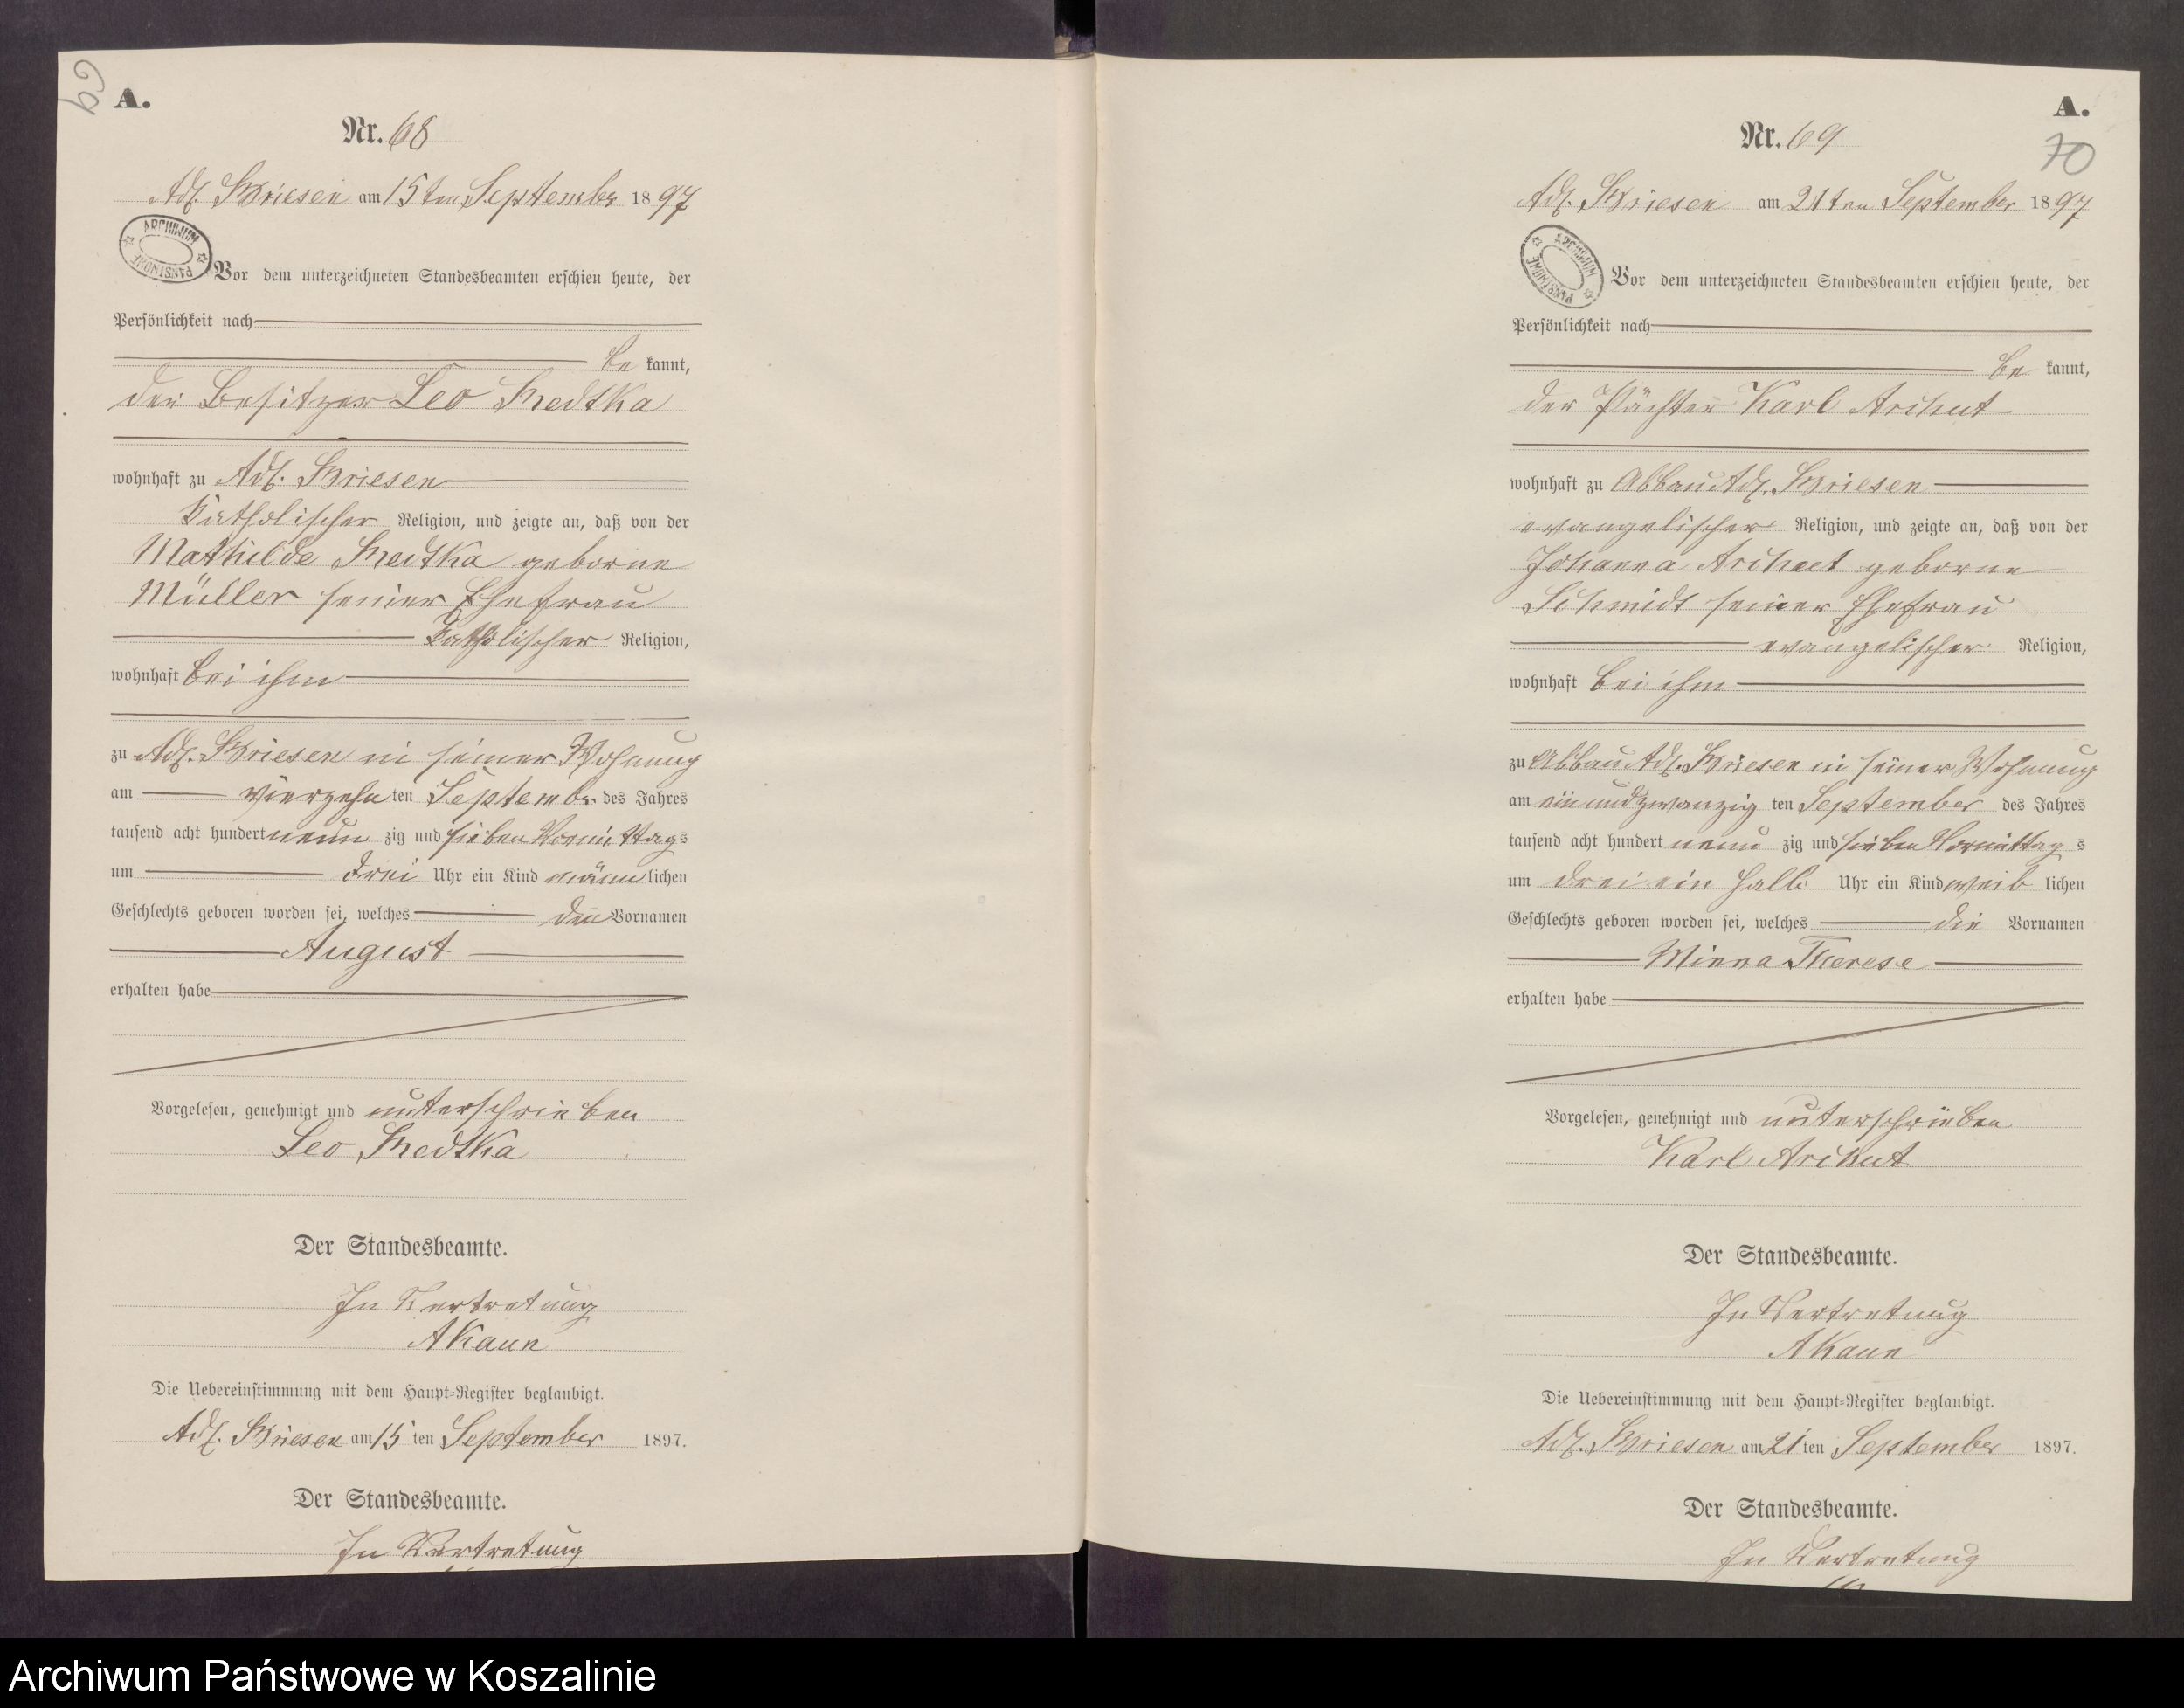 69
A.
Nr. 68
Adl. Briesen am 15ten September 1897
ARCHIWUM PAŃSTWOWE
Vor dem unterzeichneten Standesbeamten erschien heute, der
Persönlichkeit nach
be kannt,
der Besitzer Leo
wohnhaft zu Adl. Briesen
Katholischer Religion, und zeigte an, daß von der
Mathilde geborne
Müller seiner Ehefrau
Katholischer Religion,
wohnhaft bei ihm
zu Adl. Briesen in seiner Wohnung
am vierzehn ten Septembr. des Jahres
tausend acht hundert neun zig und sieben Vormittags
um drei Uhr ein Kind männlichen
Geschlechts geboren worden sei, welches den Vornamen
August
erhalten habe
Vorgelesen, genehmigt und unterschrieben
Leo
Der Standesbeamte.
In Vertretung
A Kaun
Die Uebereinstimmung mit dem Haupt-Register beglaubigt.
Adl. Briesen am 15 ten September 1897.
Der Standesbeamte.
In Vertretung
A.
70
Nr. 69
Adl. Briesen am 21ten September 1897
ARCHIWUM PAŃSTWOWE
Vor dem unterzeichneten Standesbeamten erschien heute, der
Persönlichkeit nach
be kannt,
der Pächter Karl Arikut
wohnhaft zu Abbau Adl. Briesen
evangelischer Religion, und zeigte an, daß von der
Johanna Arikut geborne
Schmidt seiner Ehefrau
evangelischer Religion,
wohnhaft bei ihm
zu Abbau Adl. Briesen in seiner Wohnung
am ein und zwanzig ten September des Jahres
tausend acht hundert neun zig und sieben Vormittag s
um drei ein halb Uhr ein Kind weib lichen
Geschlechts geboren worden sei, welches die Vornamen
Minna Therese
erhalten habe
Vorgelesen, genehmigt und unterschrieben
Karl Arikut
Der Standesbeamte.
In Vertretung
A Kaun
Die Uebereinstimmung mit dem Haupt-Register beglaubigt.
Adl. Briesen am 21 ten September 1897.
Der Standesbeamte.
In Vertretung
Archiwum Państwowe w Koszalinie